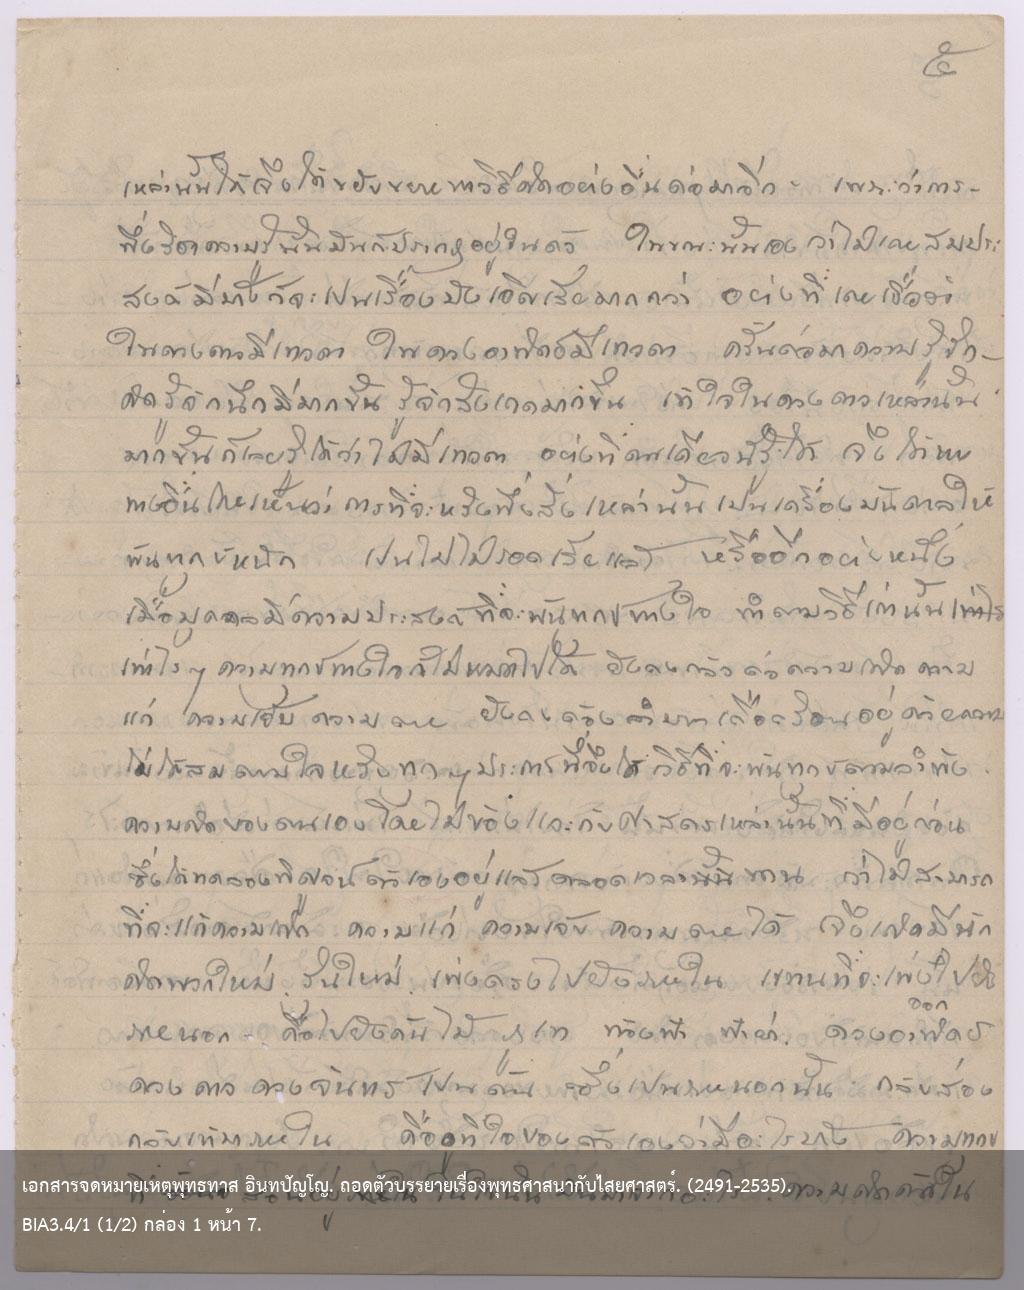 ๕
เหล่านั้นได้ จึงได้ขยับขยายหาวิธีคิดอย่างอื่นต่อมาอีก - เพราะว่าการ-
พึ่ง ความรู้นั้นมันก็ปรากฏอยู่ในตัว ในขณะนั้นเอง ว่าไม่เคยสมประ
สงค์ มีบ้างก็จะเป็นเรื่องบังเอิญเสียมากกว่า อย่างที่เคยเชื่อว่า
ในดวงดาวมีเทวดา ในดวงอาทิตย์มีเทวดา ครั้นต่อมาความรู้สึก-
คิดรู้จักนึกมีมากขึ้น รู้จักสังเกตมากขึ้น เข้าใจในดวงดาวเหล่านั้น
มากขึ้น ก็เลยรู้ได้ว่าไม่มีเทวดา อย่างที่ตนเคย จึงได้หา
ทางอื่นโดยเห็นว่า การที่จะหวังพึ่งสิ่งเหล่านั้นเป็นเครื่องบันดาลให้
พ้นทุกข์หนัก เป็นไปไม่รอดเสียแล้ว หรืออีกอย่างหนึ่ง
เมื่อบุคคลมีความประสงค์ที่จะพ้นทุกข์ทางใจ ทำตามวิธีเก่านั้นเท่าไร
เท่าไรๆ ความทุกข์ทางใจก็ไม่หมดไปได้ ยังคงกลัวต่อความเกิด ความ
แก่ ความเจ็บ ความตาย ยังคงต้องลำบากเดือดร้อนอยู่ด้วยความ
ไม่ได้สมตามใจหวังทุกๆ ประการ นี่จึงได้ วิธีที่จะพ้นทุกข์ตามลำพัง
ความคิดของตนเองโดยไม่ข้องแวะกับศาสตรเหล่านั้นที่มีอยู่ก่อน
ซึ่งได้ทดลองพิสูจน์ตัวเองอยู่แล้วตลอดเวลา นาน ว่าไม่สามารถ
ที่จะแก้ความเกิด ความแก่ ความเจ็บ ความตายได้ จึงเกิดมีนัก
คิดพวกใหม่ รุ่นใหม่ เพ่งตรงไปยังภายใน แทนที่จะเพ่งไปยัง
ออก
ภายนอก - คือไปยังต้นไม้ ภูเขา ท้องฟ้า ฟ้าผ่า. ดวงอาทิตย์
ดวงดาว ดวงจันทร์ เป็นต้น ซึ่งเป็นภายนอกนั้น กลับส่อง
กลับเข้ามาภายใน คือดูที่ใจของตัวเองว่ามีอะไรบ้าง ความทุกข์
ความคิด
เอกสารจดหมายเหตุพุทธทาส อินฺทปัญฺโญ. ถอดตัวบรรยายเรื่องพุทธศาสนากับไสยศาสตร์. (2491-2535).
BIA3.4/1 (1/2) กล่อง 1 หน้า 7.